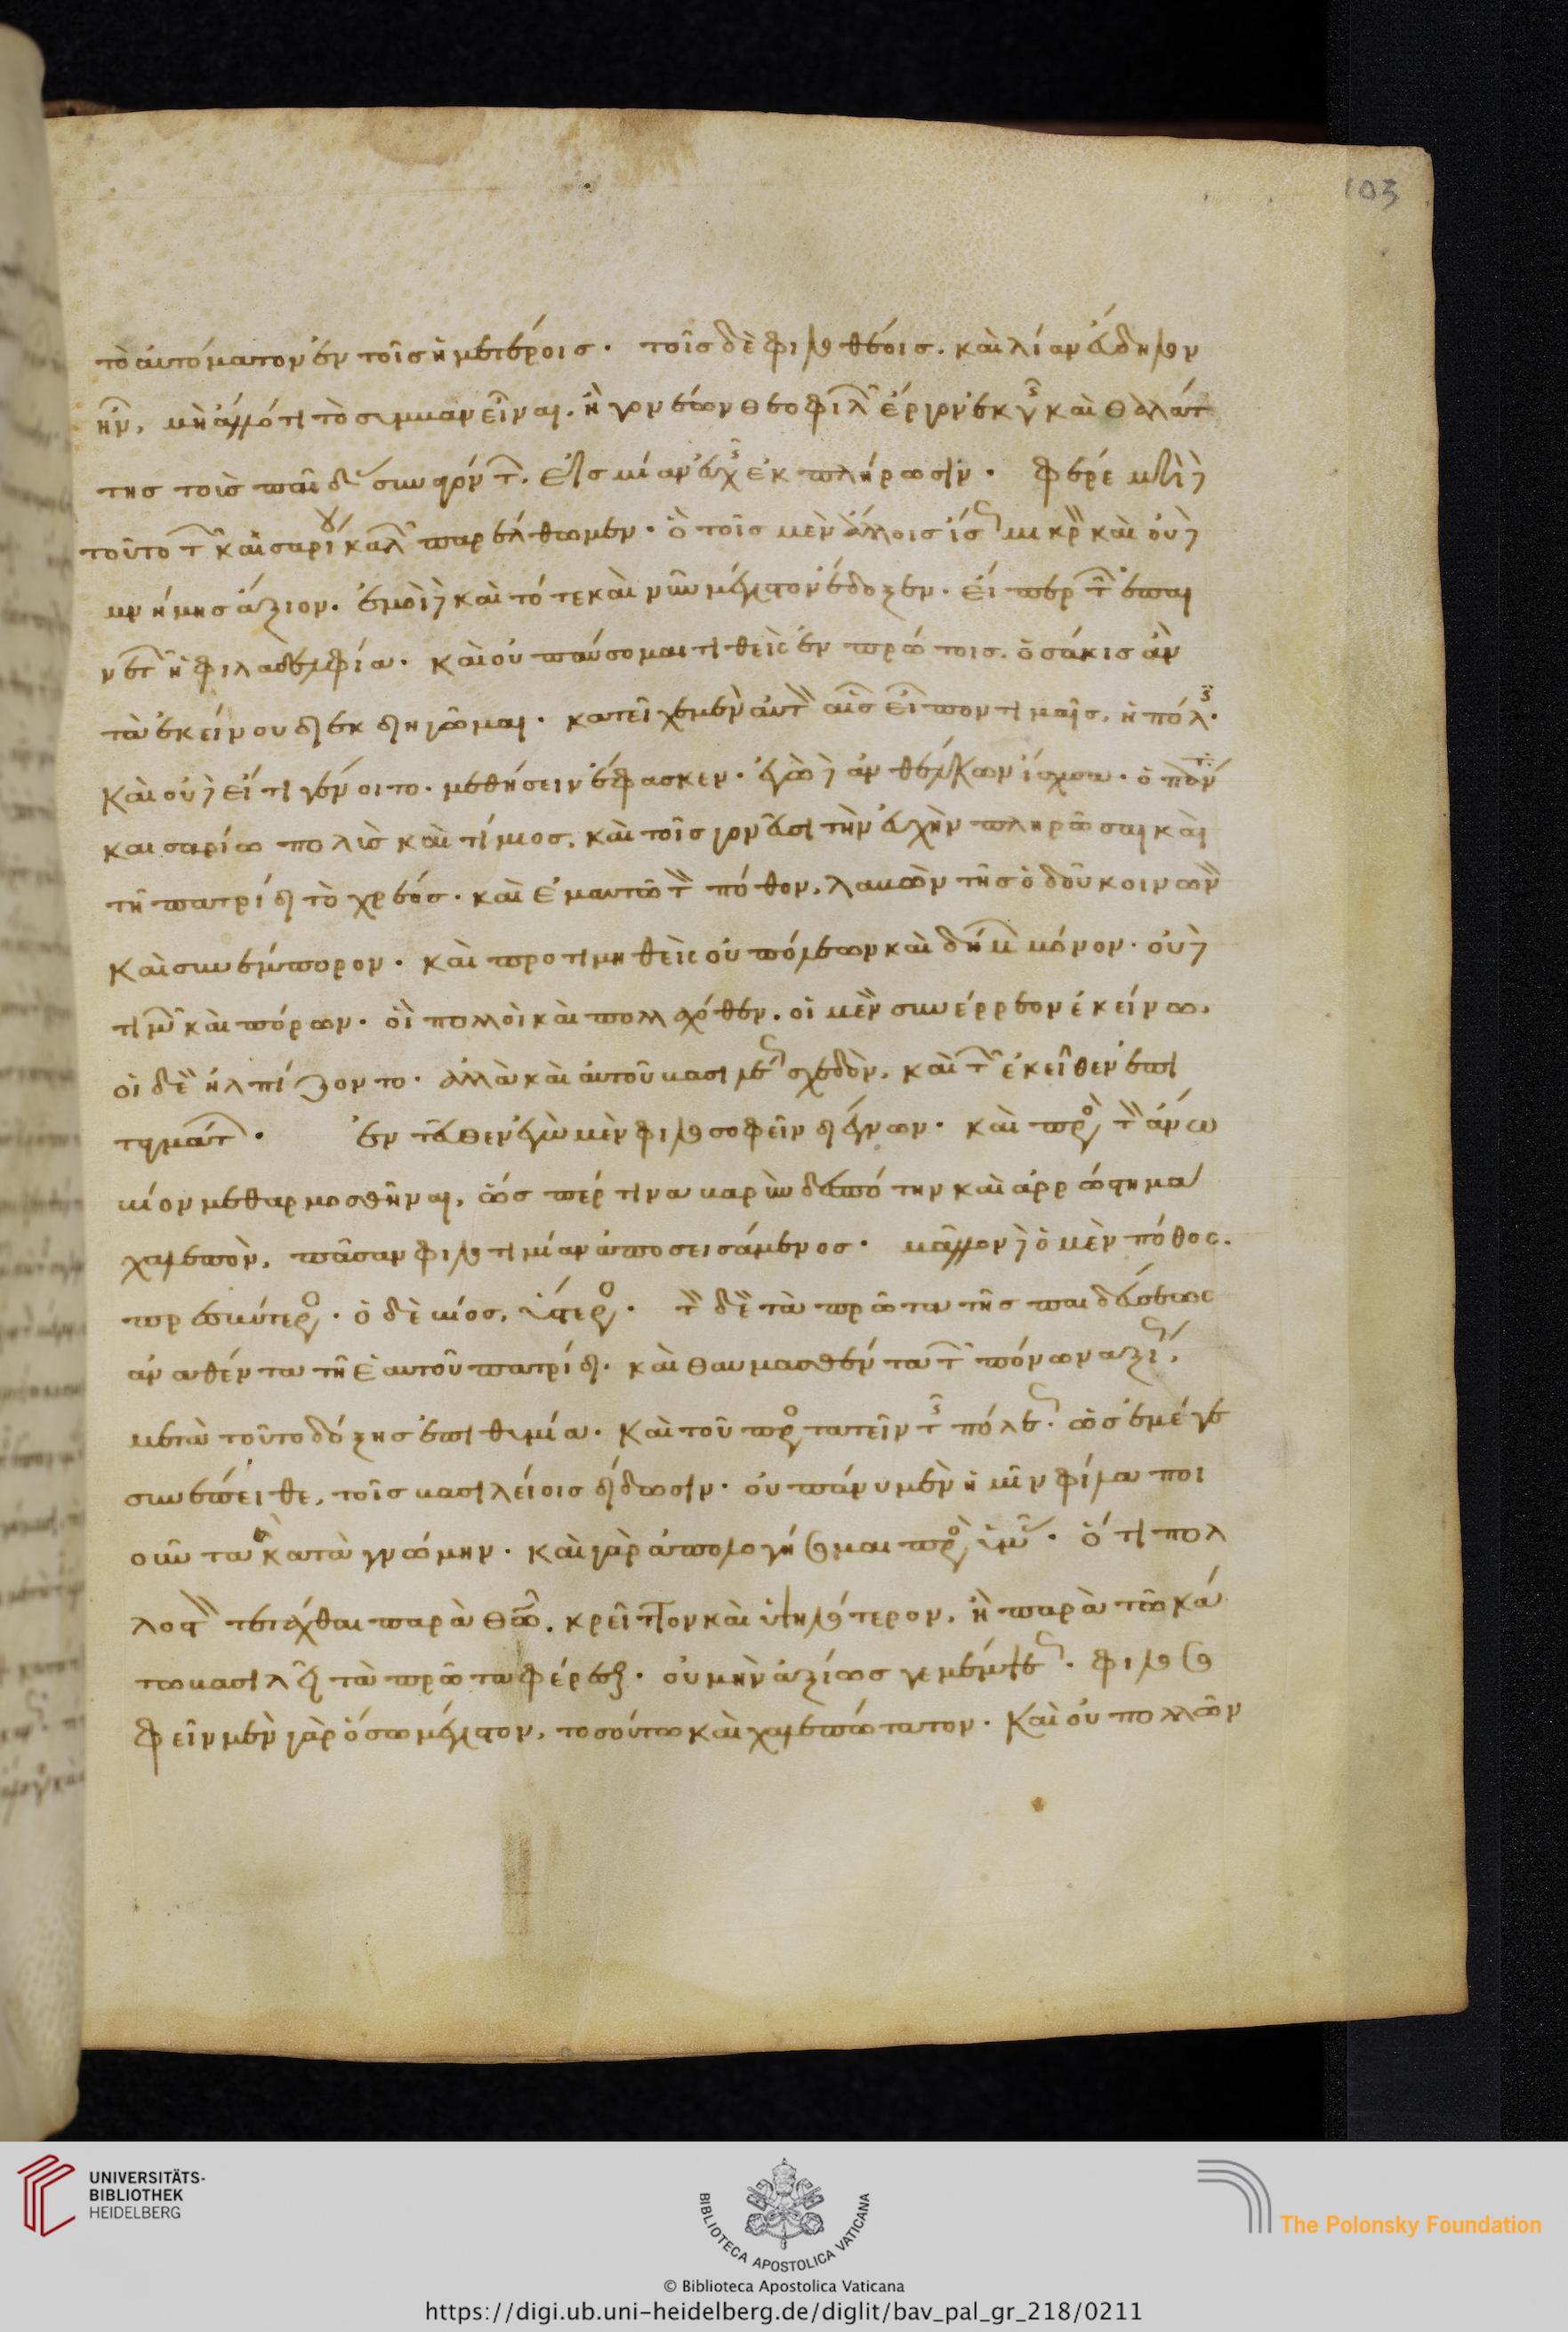 103
τὸ αὐτόματον ἐν τοῖς ἡμετέροις· τοῖς δὲ φιλοθέοις. καὶ λίαν εὔδηλον
ἦν, μὴ ἄλλό τι τὸ συμβὰν εἶναι. ἢ γονέων θεοφιλῶν ἔργον ἐκ γῆς καὶ θαλάτ
της τοὺς παῖδας συναγόντων. εἰς μίαν εὐχῆς ἐκπλήρωσιν· Φέρε μηδὲ
τοῦτο τῶν καισαρίου καλῶν παρέλθωμεν· ὃ τοῖς μὲν ἄλλοις ἴσως μικρὸν καὶ οὐδὲ
μνήμης ἄξιον. ἐμοὶ δὲ καὶ τότε καὶ νῦν μέγιστον ἔδοξεν. εἴπερ τῶν ἐπαι
νετῶν ἡ φιλαδελφία. καὶ οὐ παύσομαι τιθεὶς ἐν πρώτοις. ὁσάκις ἂν
τὰ ἐκείνου διεκδιηγῶμαι. κατεῖχε μὲν αὐτὸν αἷς εἶπον τιμαῖς, ἡ πόλις.
καὶ οὐδὲ εἴ τι γένοιτο. μεθήσειν ἔφασκεν. ἐγὼ δὲ ἀνθέλκων ἴσχυσα. ὁ πάντα
καισαρίω πολὺς καὶ τίμιος. καὶ τοῖς γονεῦσι τὴν εὐχὴν πληρῶσαι καὶ
τῆ πατρίδι τὸ χρέος. καὶ ἐμαυτῶ τὸν πόθον. λαβὼν τῆς ὁδοῦ κοινωνὸν
καὶ συνέμπορον. καὶ προτιμηθεὶς οὐ πόλεων καὶ δήμων μόνον. οὐδὲ
τιμῶν καὶ πόρων. οἳ πολλοὶ καὶ πολλαχόθεν. οἱ μὲν συνέρρεον ἐκείνω.
οἱ δὲ ἠλπίζοντο. ἀλλὰ καὶ αὐτοῦ βασιλέως σχεδὸν, καὶ τῶν ἐκεῖθεν ἐπι
ταγμάτων. ἐντεῦθεν ἐγὼ μὲν φιλοσοφεῖν διέγνων. καὶ πρὸς τὸν ἄνω
βίον μεθαρμοσθῆναι, ὥσπερ τινα βαρὺν δεσπότην καὶ ἀρρώστημα
χαλεπὸν, πᾶσαν φιλοτιμίαν ἀποσεισάμενος. μᾶλλον δὲ ὁ μὲν πόθος.
πρεσβύτερος. ὁ δὲ βίος, ὕστερος. τὸν δὲ τὰ πρῶτα τῆς παιδεύσεως
ἀναθέντα τῆ ἑαυτοῦ πατρίδι. καὶ θαυμασθέντα τῶν πόνων ἀξίως,
μετὰ τοῦτο δόξης ἐπιθυμία. καὶ τοῦ προστατεῖν τῆς πόλεως. ὡς ἐμέ γε
συνέπειθε, τοῖς βασιλείοις δίδωσιν. οὐ πάνυ μὲν ἡμῖν φίλα ποι
οῦντα κατὰ γνώμην. καὶ γὰρ ἀπολογήσομαι πρὸς ὑμᾶς. ὅτι πολ
λοστὸν τετάχθαι παρὰ θεῶ. κρεῖττον καὶ ὑψηλότερον, ἢ παρὰ τῶ κά
τω βασιλεῖ τὰ πρῶτα φέρεσθαι. οὐ μὴν ἀξίως γε μέμψεως. φιλοσο
φεῖν μὲν γὰρ ὅσω μέγιστον, τοσούτω καὶ χαλεπώτατον. καὶ οὐ πολλῶν
UNIVERSITÄTS-
BIBLIOTHEK
HEIDELBERG
BIBLIOTECA APOSTOLICA VATICANA
The Polonsky Foundation
© Biblioteca Apostolica Vaticana
https://digi.ub.uni-heidelberg.de/diglit/bav_pal_gr_218/0211